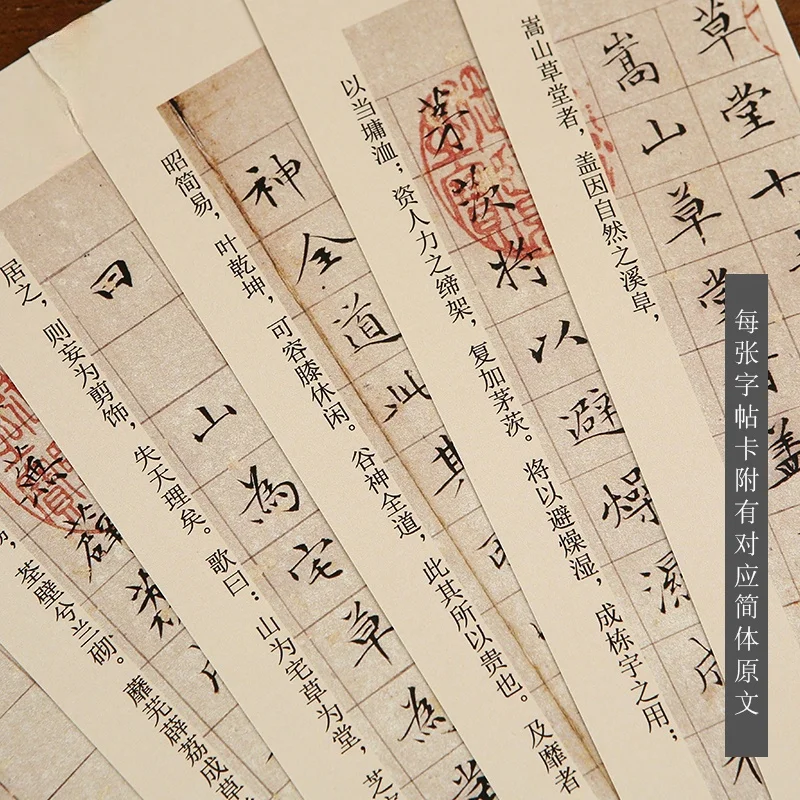 草堂十
嵩山草堂
嵩山草堂者，盖因自然之溪阜，
茅茨将以避燥濕成
以当墉洫；资人力之缔架，复加茅茨。将以避燥湿，成栋宇之用；
神全道此其
昭简易，叶乾坤，可容膝休闲。谷神全道，此其所以贵也。及靡者
曰 山為宅草為堂
居之，则妄为剪饰，失天理矣。歌曰：山为宅草为堂，芝
蕪薜荔
荃壁兮兰砌。蘼芜薜荔成草
每张字帖卡附有对应简体原文